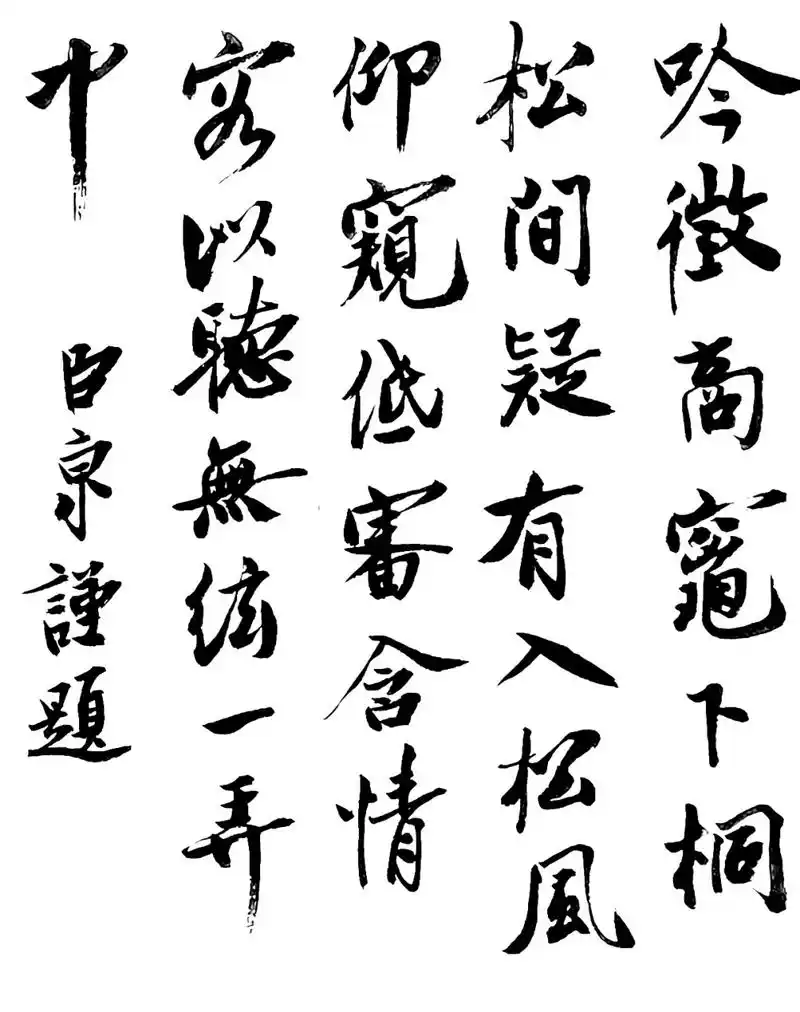 吟徵商竈下桐
松間疑有入松風
仰窺低審含情
客似聽無絃一弄
中
臣京謹題